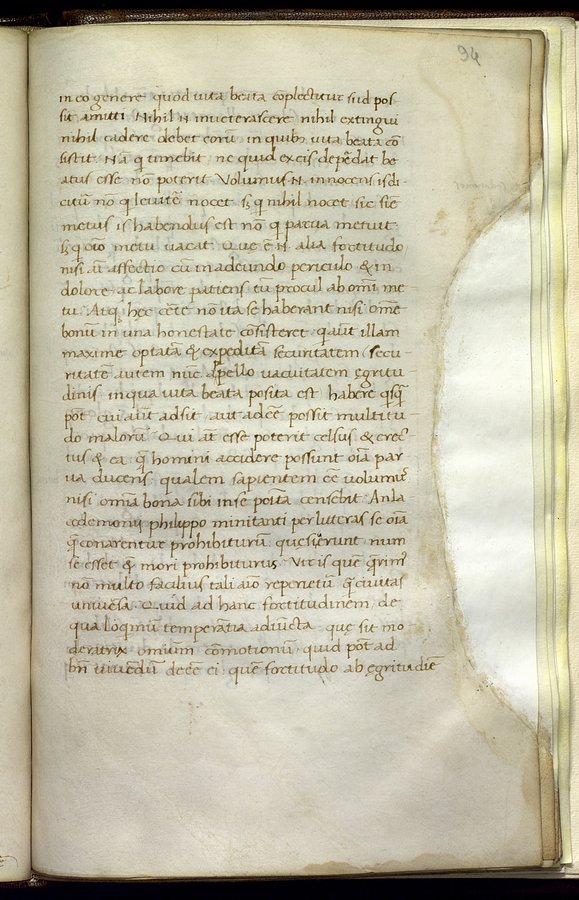 94
in eo genere quod uita beata cōplectitur siid pos-
sit amitti Nihil .N. inueterascere nihil extingui
nihil cadere debet eorū in quibꝫ uita beata cō
sistit Nā q̄ timebit ne quid ex eis depēdat be
atus esse nō poterit Volumus .N. innocens is di
citū nō q̄ leuitē nocet sꝫ q̄ nihil nocet sic sine
metu is habendus est nō q̄ parua metuit
sꝫ q̄ oīo metu uacat Que ē .N. alia fortitudo
nisi aī affectio cū in adeundo periculo & in
dolore ac labore patiens tū procul ab omī me
tu Atqꝫ hec certe nō ita se haberant nisi omē
bonū in una honestate cōsisteret q̄ aūt illam
maxime optatā & expeditā securitatem secu
ritatē autem nūc appello uacuitatem egritu
dinis in qua uita beata posita est habere q̄sq̄
pōt cui aūt adsit aut adeē possit multitu
do malorū Qui aūt esse poterit celsus & erec
tus & ea q̄ homini accidere possunt oīa par
ua ducens qualem sapientem eē volumꝰ
nisi omīa bona sibi in se posita censebit An la
cedemonij philippo minitanti per litteras se oīa
q̄ conarentur prohibiturū quesierunt num
se esset & mori prohibiturus Vir is quē q̄rimꝰ
nō multo facilius tali aīo reperietū q̄ ciuitas
uniuersa Quid ad hanc fortitudinem de
qua loqmū temperātia adiūcta quę sit mo
deratrix omium cōmotionū quid pōt ad
bn̄ viuēdū deēē ei quē fortitudo ab ęgritudīe